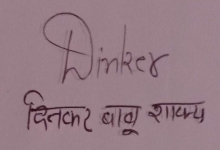 Dinker
दिनकर बाबू शाक्य